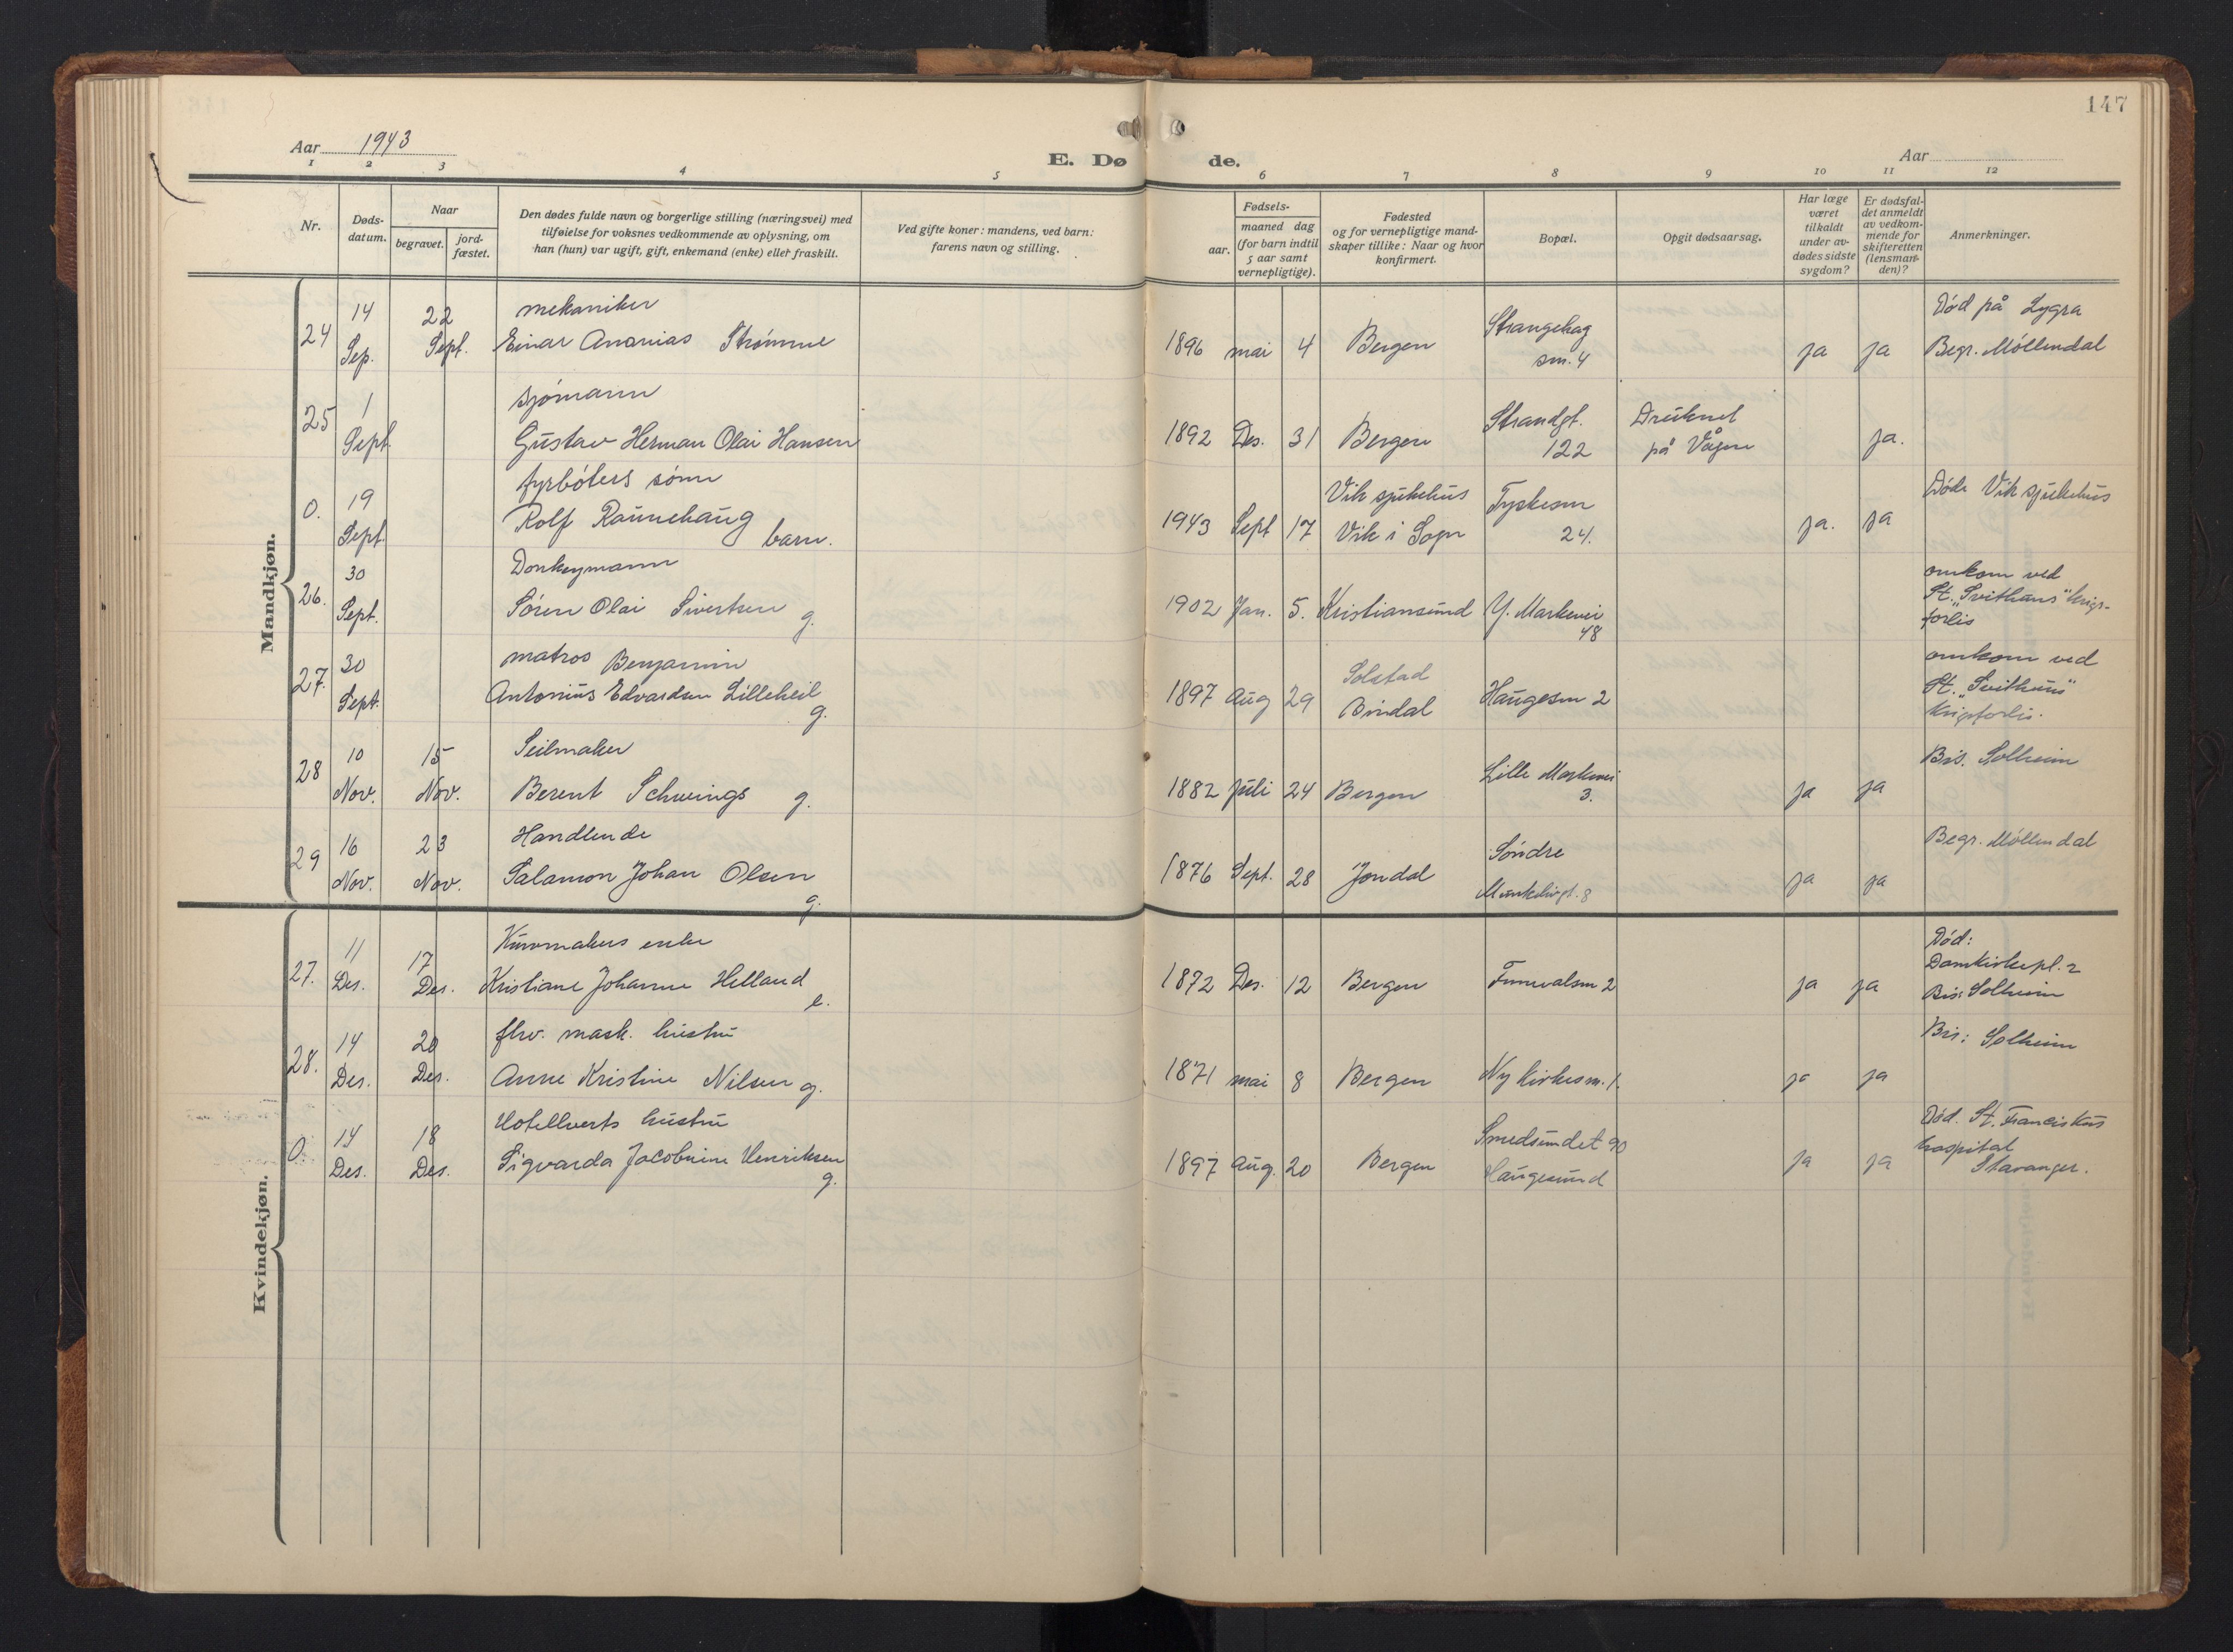 147
Aar 1943
E. Dø de.
Aar
1 2 3 4 5 6 7 8 9 10 11 12
Nr.
Døds-
datum.
Naar
begravet.
jord-
fæstet.
Den dødes fulde navn og borgerlige stilling (næringsvei) med
tilføielse for voksnes vedkommende av oplysning, om
han (hun) var ugift, gift, enkemand (enke) eller fraskilt.
Ved gifte koner: mandens, ved barn:
farens navn og stilling.
Fødsels-
aar.
maaned dag
(for barn indtil
5 aar samt
vernepligtige).
Fødested
og for vernepligtige mand-
skaper tillike: Naar og hvor
konfirmert.
Bopæl.
Opgit dødsaarsag.
Har læge
været
tilkaldt
under av-
dødes sidste
sygdom?
Er dødsfal-
det anmeldt
av vedkom-
mende for
skifteretten
(lensman-
den)?
Anmerkninger.
Mandkjøn.
24
14
Sep.
22
Sept.
mekaniker
Einar Ananias Strømme
1896 mai 4
Bergen
Strangehag
sm. 4
ja ja
Død på Lygra
Begr. Møllendal
25
1
Sept.
sjømann
Gustav Herman Olai Hansen
1892 Des. 31
Bergen
Strandgt.
122
Druknet
på Vågen
ja.
0.
19
Sept.
fyrbøters sønn
Rolf Raunehaug
barn.
1943 Sept 17
Vik sjukehus
Vik i Sogn
Tyskesm
24.
ja. ja
Døde Vik sjukehus
26.
30
Sept.
Donkeymann
Søren Olai Sivertsen g.
1902 Jan. 5.
Kristiansund
Y. Markevei
48
omkom ved
St. "Svithuns" krigs-
forlis
27.
30
Sept.
matros Benjamin
Antonius Edvardsen Lilleheil
g.
1897 Aug 29
Solstad
Bindal
Haugesm 2
omkom ved
St. "Svithuns"
krigsforlis.
28
10
Nov.
15
Nov.
Seilmaker
Berent Schwings g.
1882 Juli 24
Bergen
Lille Markevei
3.
ja ja
Bis. Solheim
29
16
Nov.
23
Nov.
Handlende
Salamon Johan Olsen
g.
1876 Sept. 28
Jondal
Søndre
8
ja ja
Begr. Møllendal
Kvindekjøn.
27.
11
Des.
17
Des.
Kurvmakers enke
Kristiane Johanne Helland
e.
1872 Des. 12
Bergen
2
ja ja
Død:
Domkirkepl. 2
Bis: Solheim
28.
14
Des.
20
Des.
fhv. mask. hustru
Anne Kristine Nilsen g.
1871 mai 8
Bergen
Ny kirkesm. 1.
ja ja
Bis: Solheim
0.
14
Des.
18
Des.
Hotellverts hustru
Sigvarda Jacobnine Henriksen
g.
1897 Aug. 20
Bergen
Smedsundet 90
Haugesund
ja ja
Død. St. Franciskus
hospital
Stavanger.